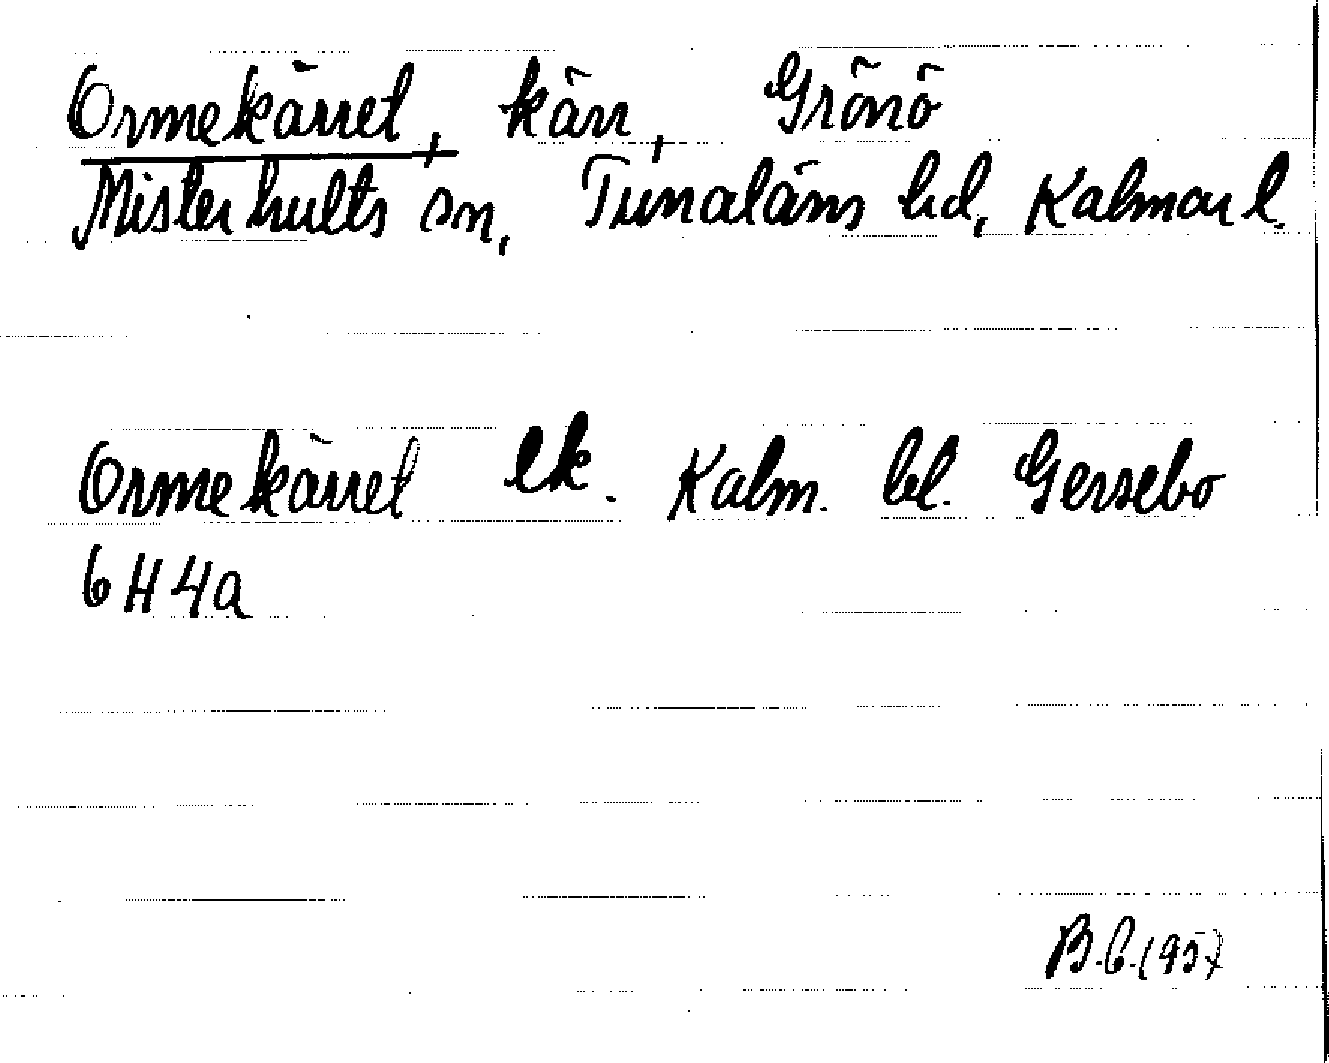 Ormekärret, kärr, Grönö
Misterhults sn, Tunaläns hd, Kalmar l.
Ormekärret ek. Kalm. bl. Gersebo
6H4a
B.C. (95)